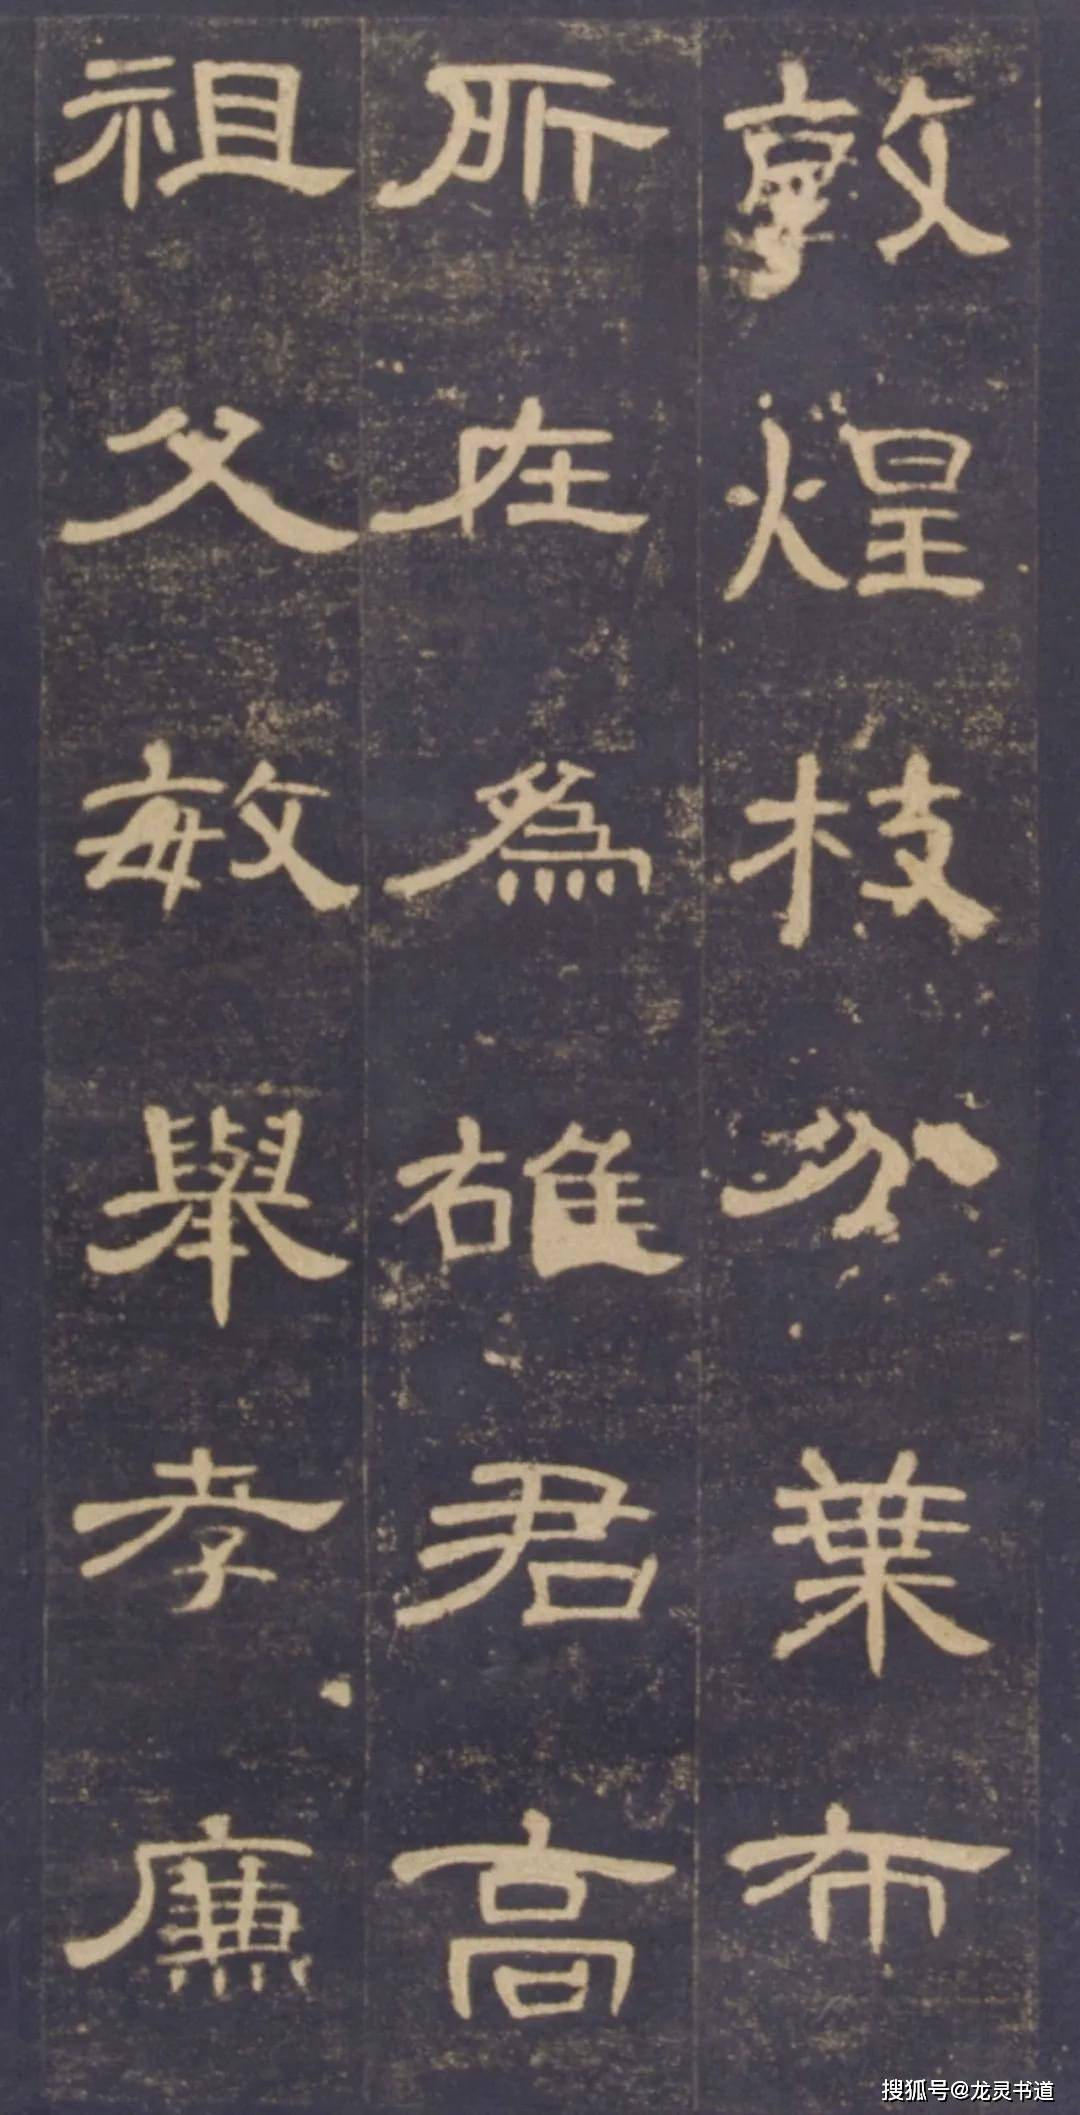 敦煌枝分葉布
所在為雄君高
祖父敏舉孝廉
搜狐号@龙灵书道